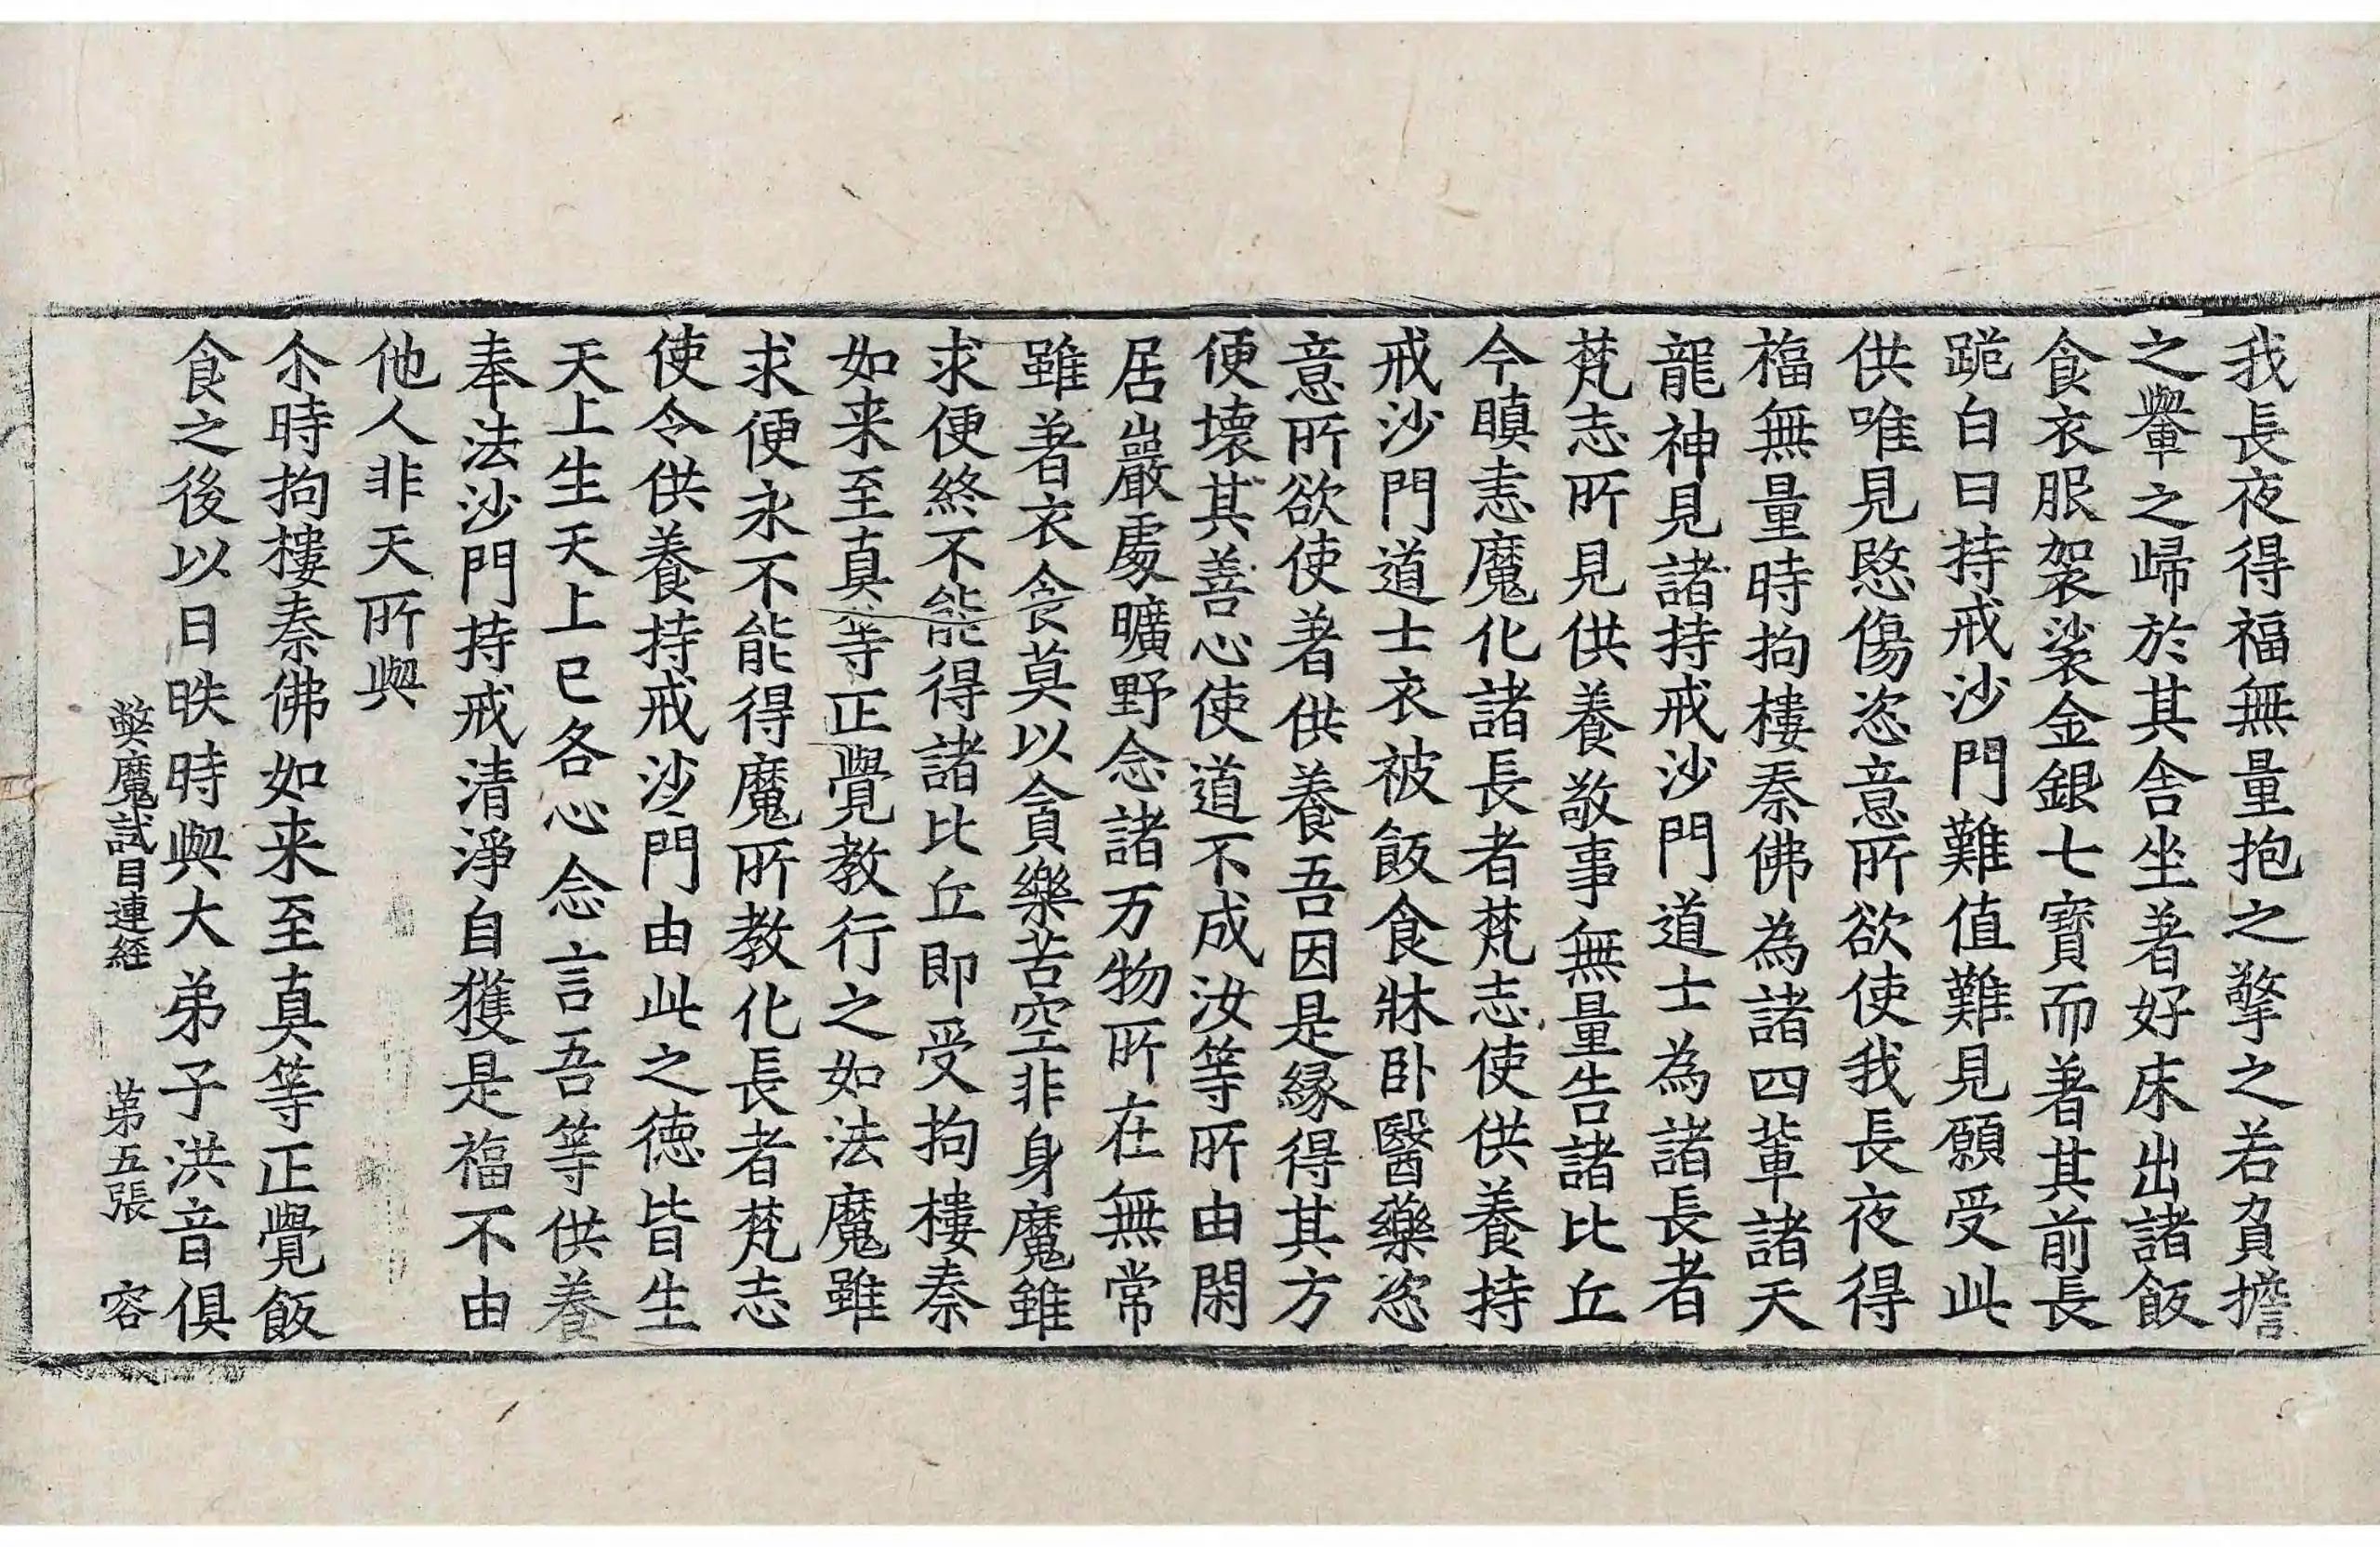 我長夜得福無量抱之擎之若負擔
之轝之歸於其舍坐著好床出諸飯
食衣服袈裟金銀七寶而著其前長
跪白曰持戒沙門難值難見願受此
供唯見愍傷恣意所欲使我長夜得
福無量時拘樓秦佛為諸四輩諸天
龍神見諸持戒沙門道士為諸長者
梵志所見供養敬事無量告諸比丘
今瞋恚魔化諸長者梵志使供養持
戒沙門道士衣被飯食牀卧醫藥恣
意所欲使著供養吾因是緣得其方
便壞其善心使道不成汝等所由閑
居巖處曠野念諸万物所在無常
雖著衣食莫以貪樂苦空非身魔雖
求便終不能得諸比丘即受拘樓秦
如来至真等正覺教行之如法魔雖
求便永不能得魔所教化長者梵志
使令供養持戒沙門由此之德皆生
天上生天上已各心念言吾等供養
奉法沙門持戒清淨自獲是福不由
他人非天所與
尒時拘樓秦佛如来至真等正覺飯
食之後以日昳時與大弟子洪音俱
獘魔試目連經　第五張　容